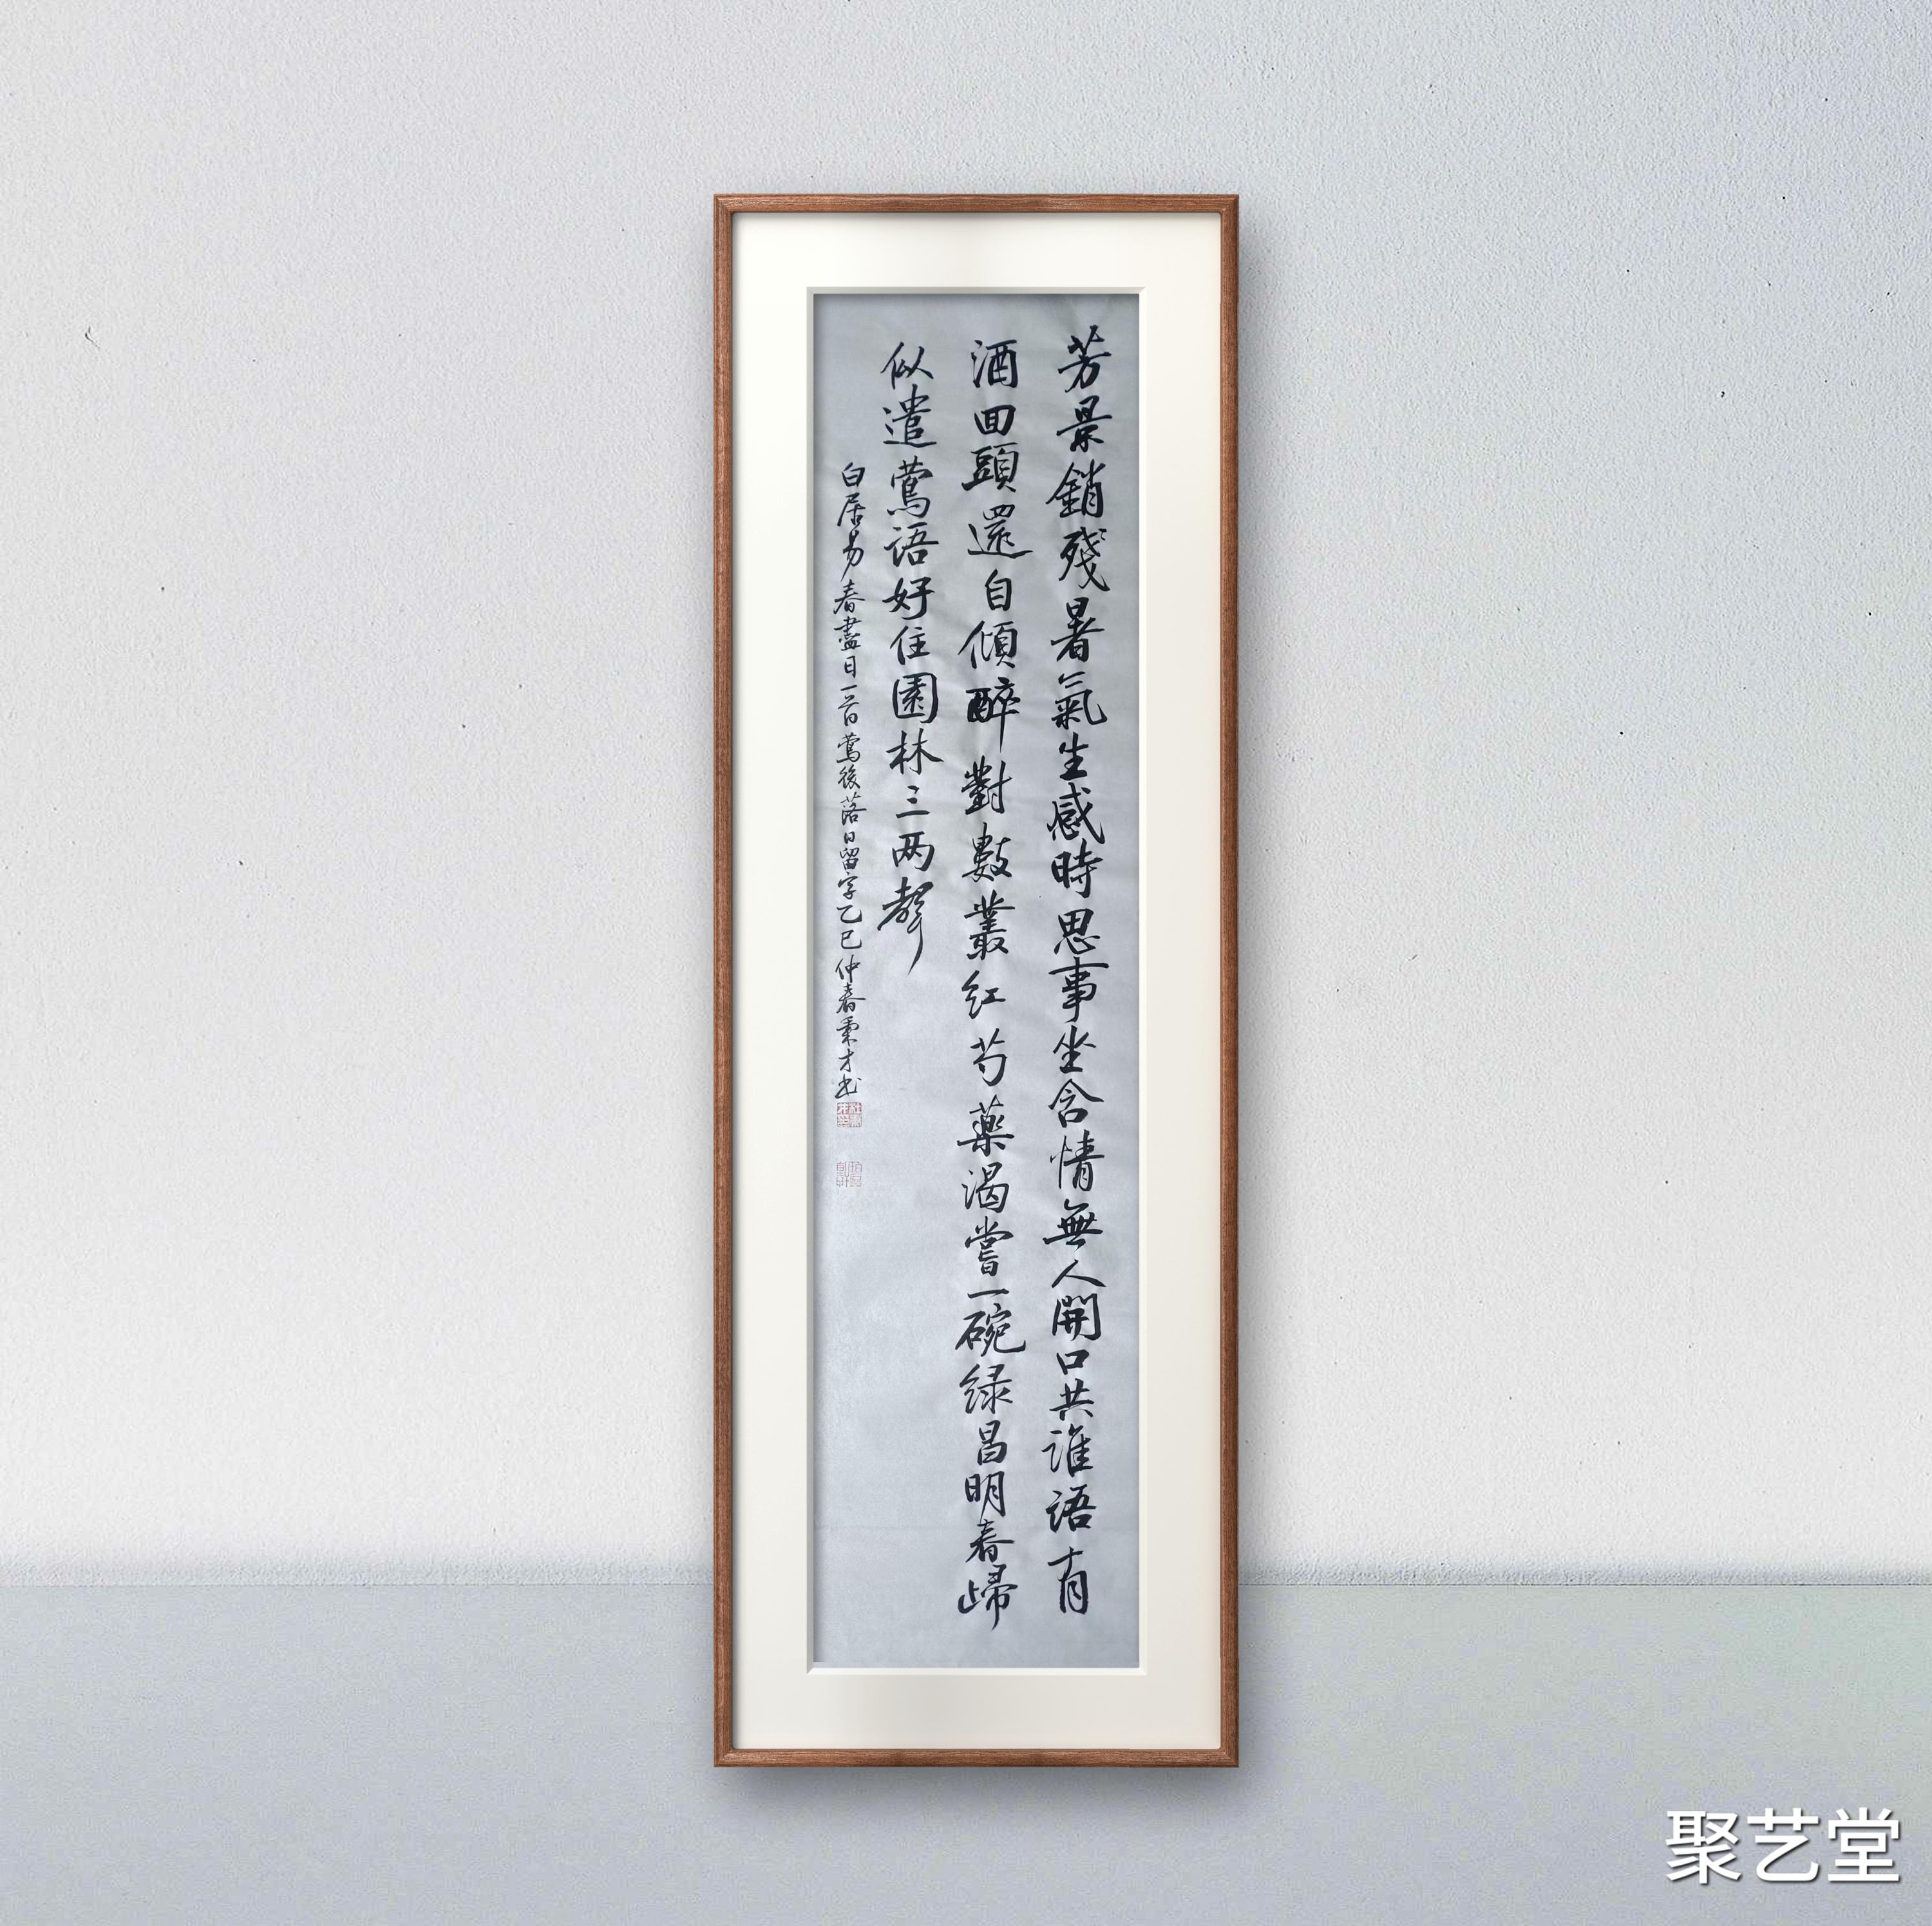 芳景銷殘暑氣生感時思事坐含情無人開口共誰語有
酒回頭還自傾醉對數叢红芍藥渴嘗一碗绿昌明春歸
似遣鶯语好住園林三两聲
白居易春盡日一首鶯後落日留字乙巳仲春秉才书
聚艺堂